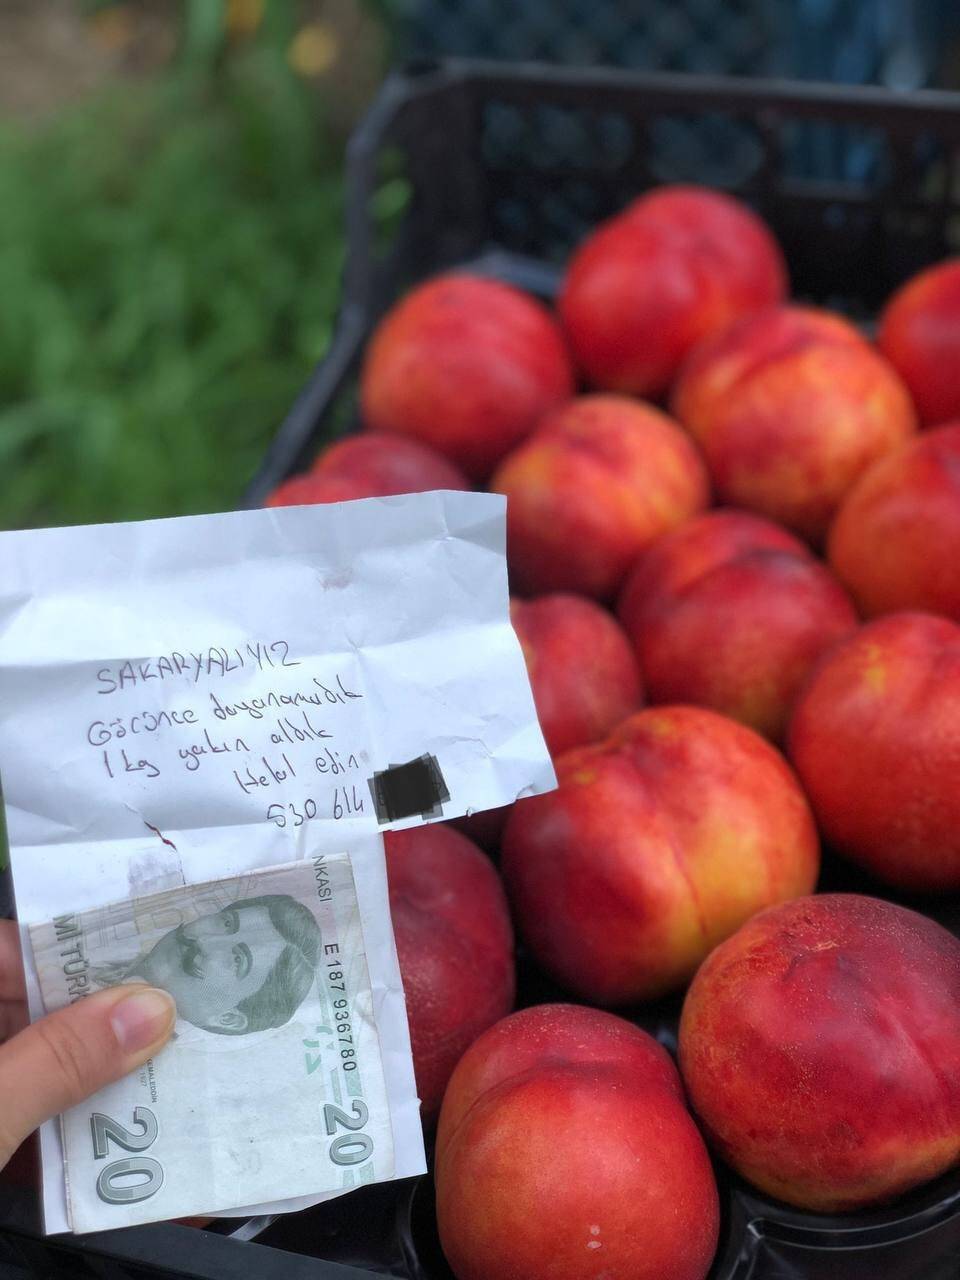 SAKARYALIYIZ
Görünce dayanamadık
1 kg yakın aldık
Helal edin
530 614
NKASI
E 187 936780
20
20